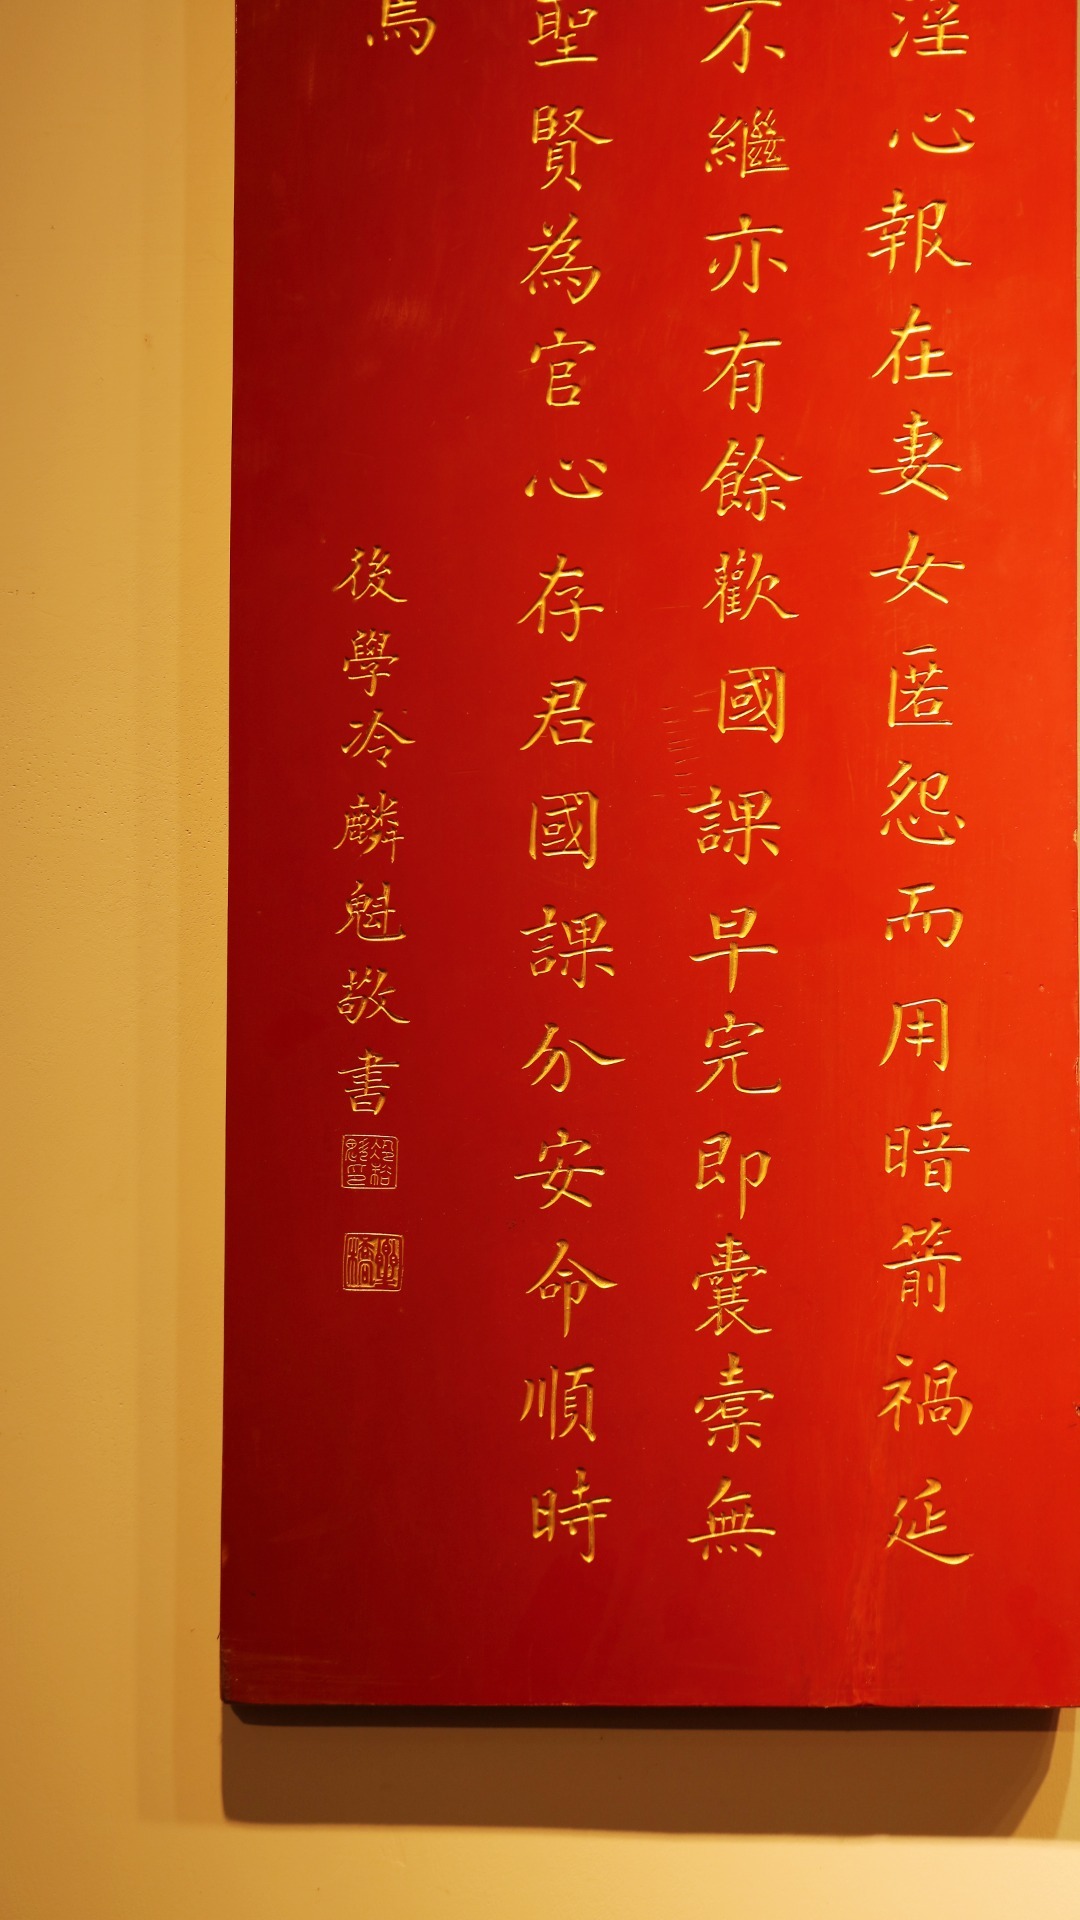 淫心報在妻女匿怨而用暗箭禍延
不繼亦有餘歡國課早完即囊橐無
聖賢為官心存君國課分安命順時
焉
後學冷麟魁敬書